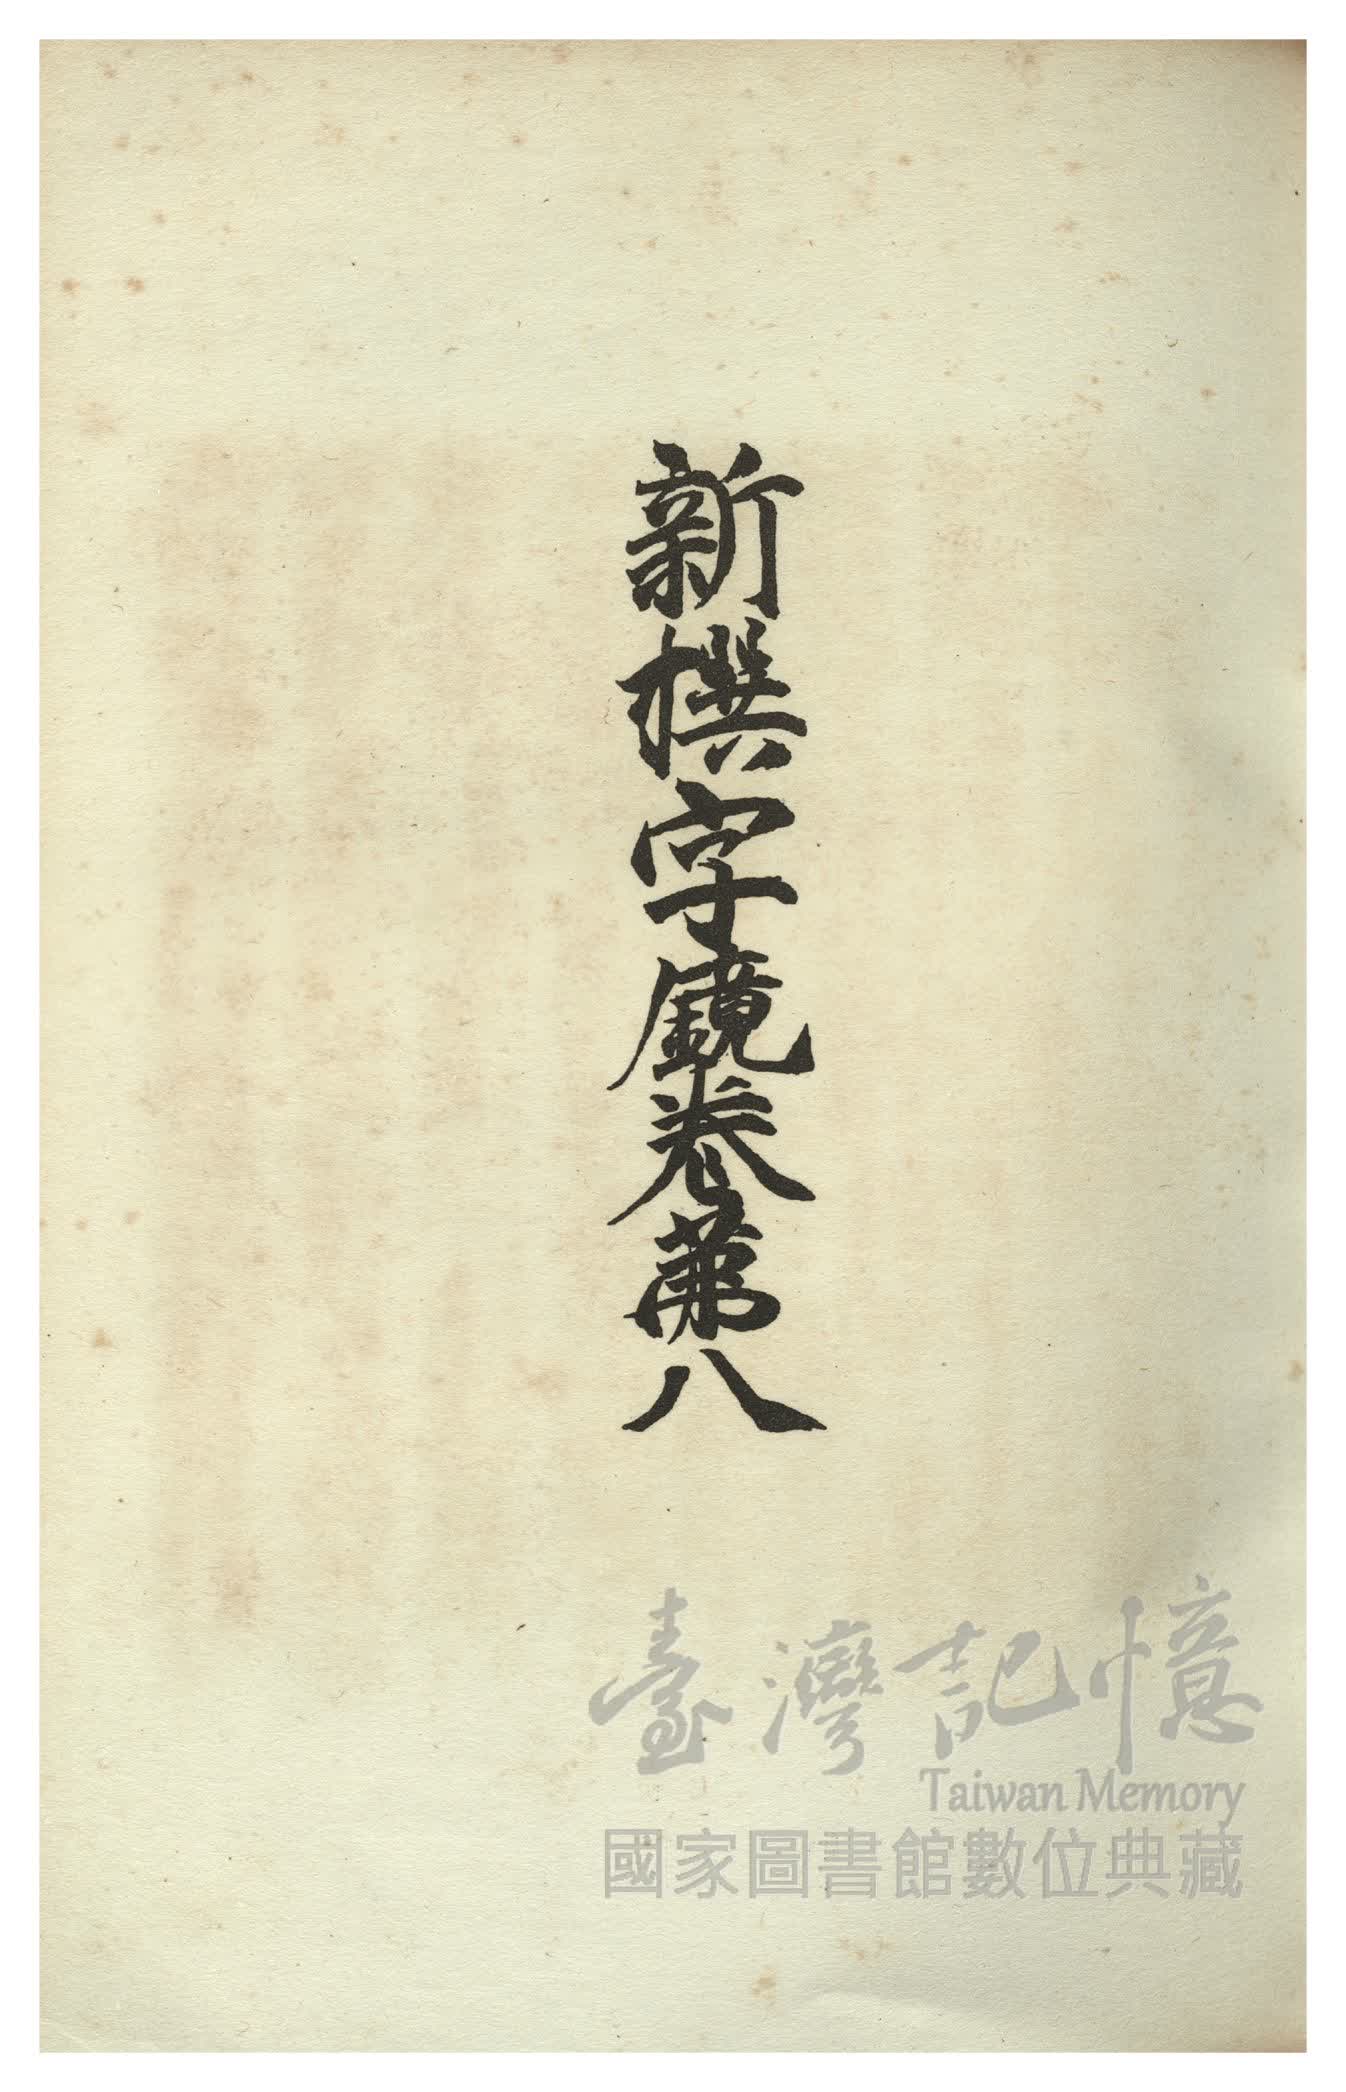 新撰字鏡卷第八
臺灣記憶
Taiwan Memory
國家圖書館數位典藏